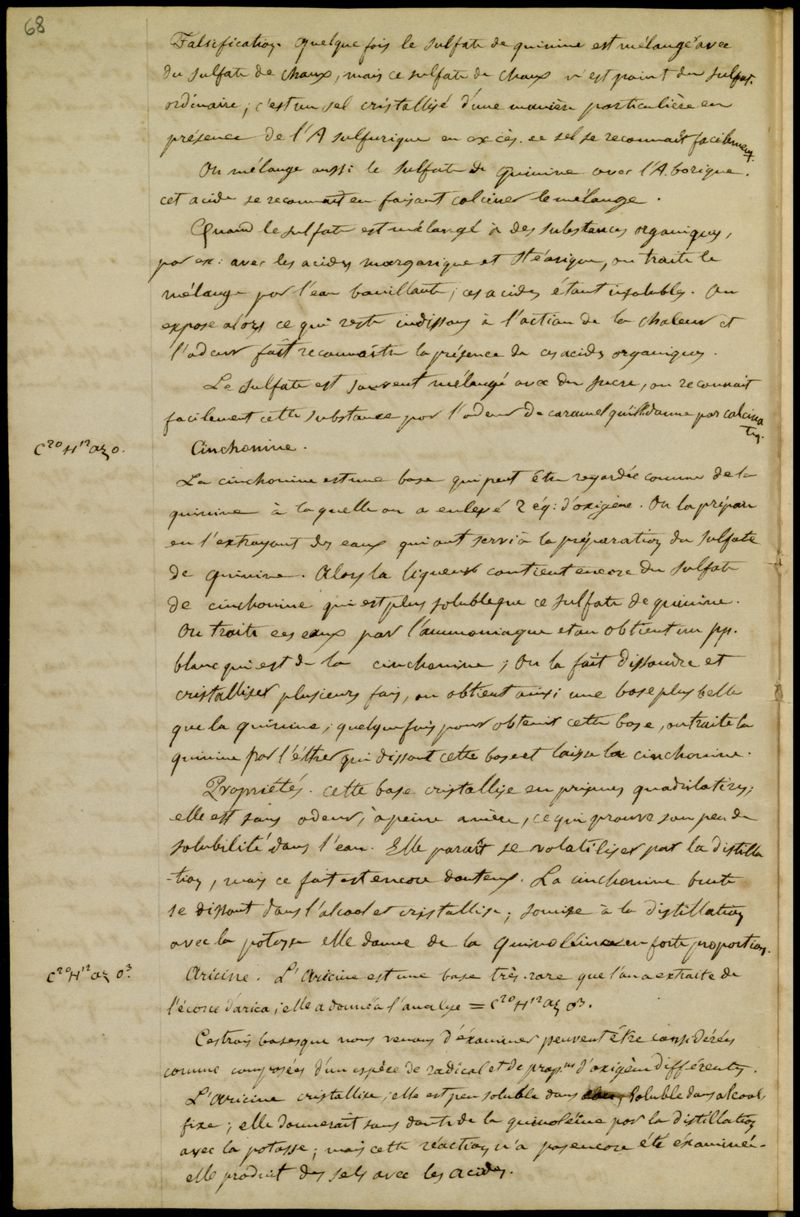 68
Falsification. Quelque fois le sulfate de quinine est mélangé avec
du sulfate de chaux, mais ce sulfate de chaux n'est point du sulfat.
ordinaire, c'est un sel cristallisé d'une manière particulière en
présence de l'A sulfurique en excès. ce sel se reconnait facilement.
On mélange aussi le sulfate de quinine avec l'A. borique.
cet acide se reconnait en faisant calciner le mélange.
Quand le sulfate est mélangé à des substances organiques,
par ex: avec les acides margarique et stéarique, on traite le
mélange par l'eau bouillante; ces acides étant insolubles. On
expose alors ce qui reste indissous à l'action de la chaleur et
l'odeur fait reconnaitre la présence de ces acides organiques.
Le sulfate est souvent mélangé avec du sucre, on reconnait
facilement cette substance par l'odeur de caramel qu'elle donne par calcina
tion.
C20 H12 az o.
Cinchonine.
La cinchonine est une base qui peut être regardée comme de la
quinine à laquelle on a enlevé 2 éq: d'oxigène. On la prépare
en l'extrayant des eaux qui ont servi à la préparation du sulfate
de quinine. Alors la liqueur contient encore du sulfate
de cinchonine qui est plus soluble que ce sulfate de quinine.
On traite ces eaux par l'ammoniaque et on obtient un pp.
blanc qui est de la cinchonine; On la fait dissoudre et
cristalliser plusieurs fois, on obtient ainsi une base plus belle
que la quinine; quelquefois pour obtenir cette base, on traite la
quinine par l'éther qui dissout cette base et laisse la cinchonine.
Propriétés. cette base cristallise en prismes quadrilatères;
elle est sans odeur, à peine amère, ce qui prouve son peu de
solubilité dans l'eau. Elle parait se volatiliser par la distilla
-tion, mais ce fait est encore douteux. La cinchonine brute
se dissout dans l'alcool et cristallise; soumise à la distillation
avec la potasse elle donne de la quinoléine en forte proportion.
C20 H12 az O3.
Aricine. L'Aricine est une base très-rare que l'on a extraite de
l'écorce d'arica; elle a donné à l'analyse = C20 H12 az O3.
Ces trois bases que nous venons d'éxaminer peuvent être considérées
comme composées d'un espèce de radical et de prop.ons d'oxigène différentes.
L'Aricine cristallise, elle est peu soluble dans soluble dans alcool
fixe; elle donnerait sans doute de la quinoléine par la distillation
avec la potasse; mais cette réaction n'a pas encore été éxaminée-
elle produit des sels avec les acides.